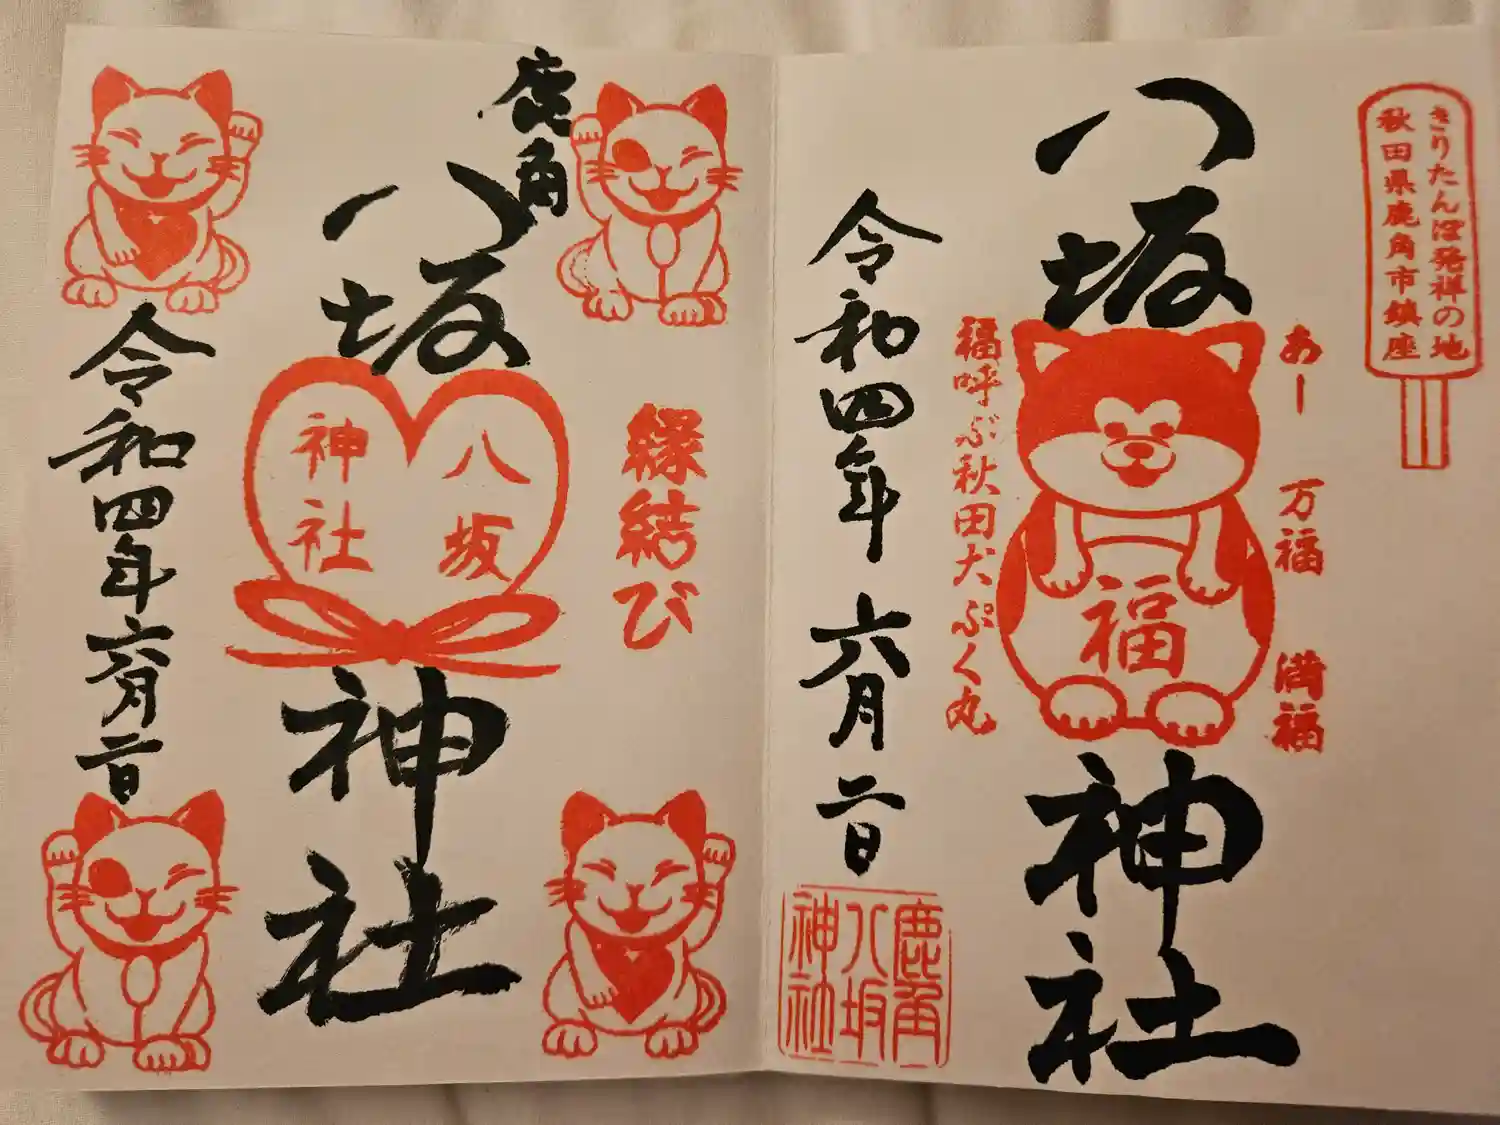 きりたんぽ発祥の地
秋田県鹿角市鎮座
あー
万福
満福
八坂
福
神社
福呼ぶ秋田犬ぷく丸
令和四年六月二日
鹿角
八坂
神社
縁結び
鹿角
八坂
八坂
神社
神社
令和四年六月二日